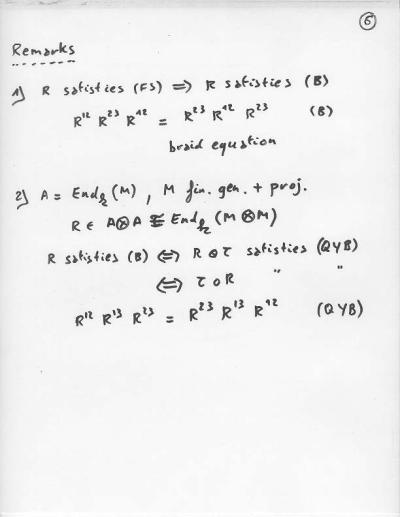 6
Remarks
1) R satisfies (FS) ⟹ R satisfies (B)
R¹² R²³ R¹² = R²³ R¹² R²³ (B)
braid equation
2) A = End_k (M), M fin. gen. + proj.
R ∈ A⊗A ≅ End_k (M⊗M)
R satisfies (B) ⟺ R ∘ τ satisfies (QYB)
⟺ τ ∘ R " "
R¹² R¹³ R²³ = R²³ R¹³ R¹² (QYB)